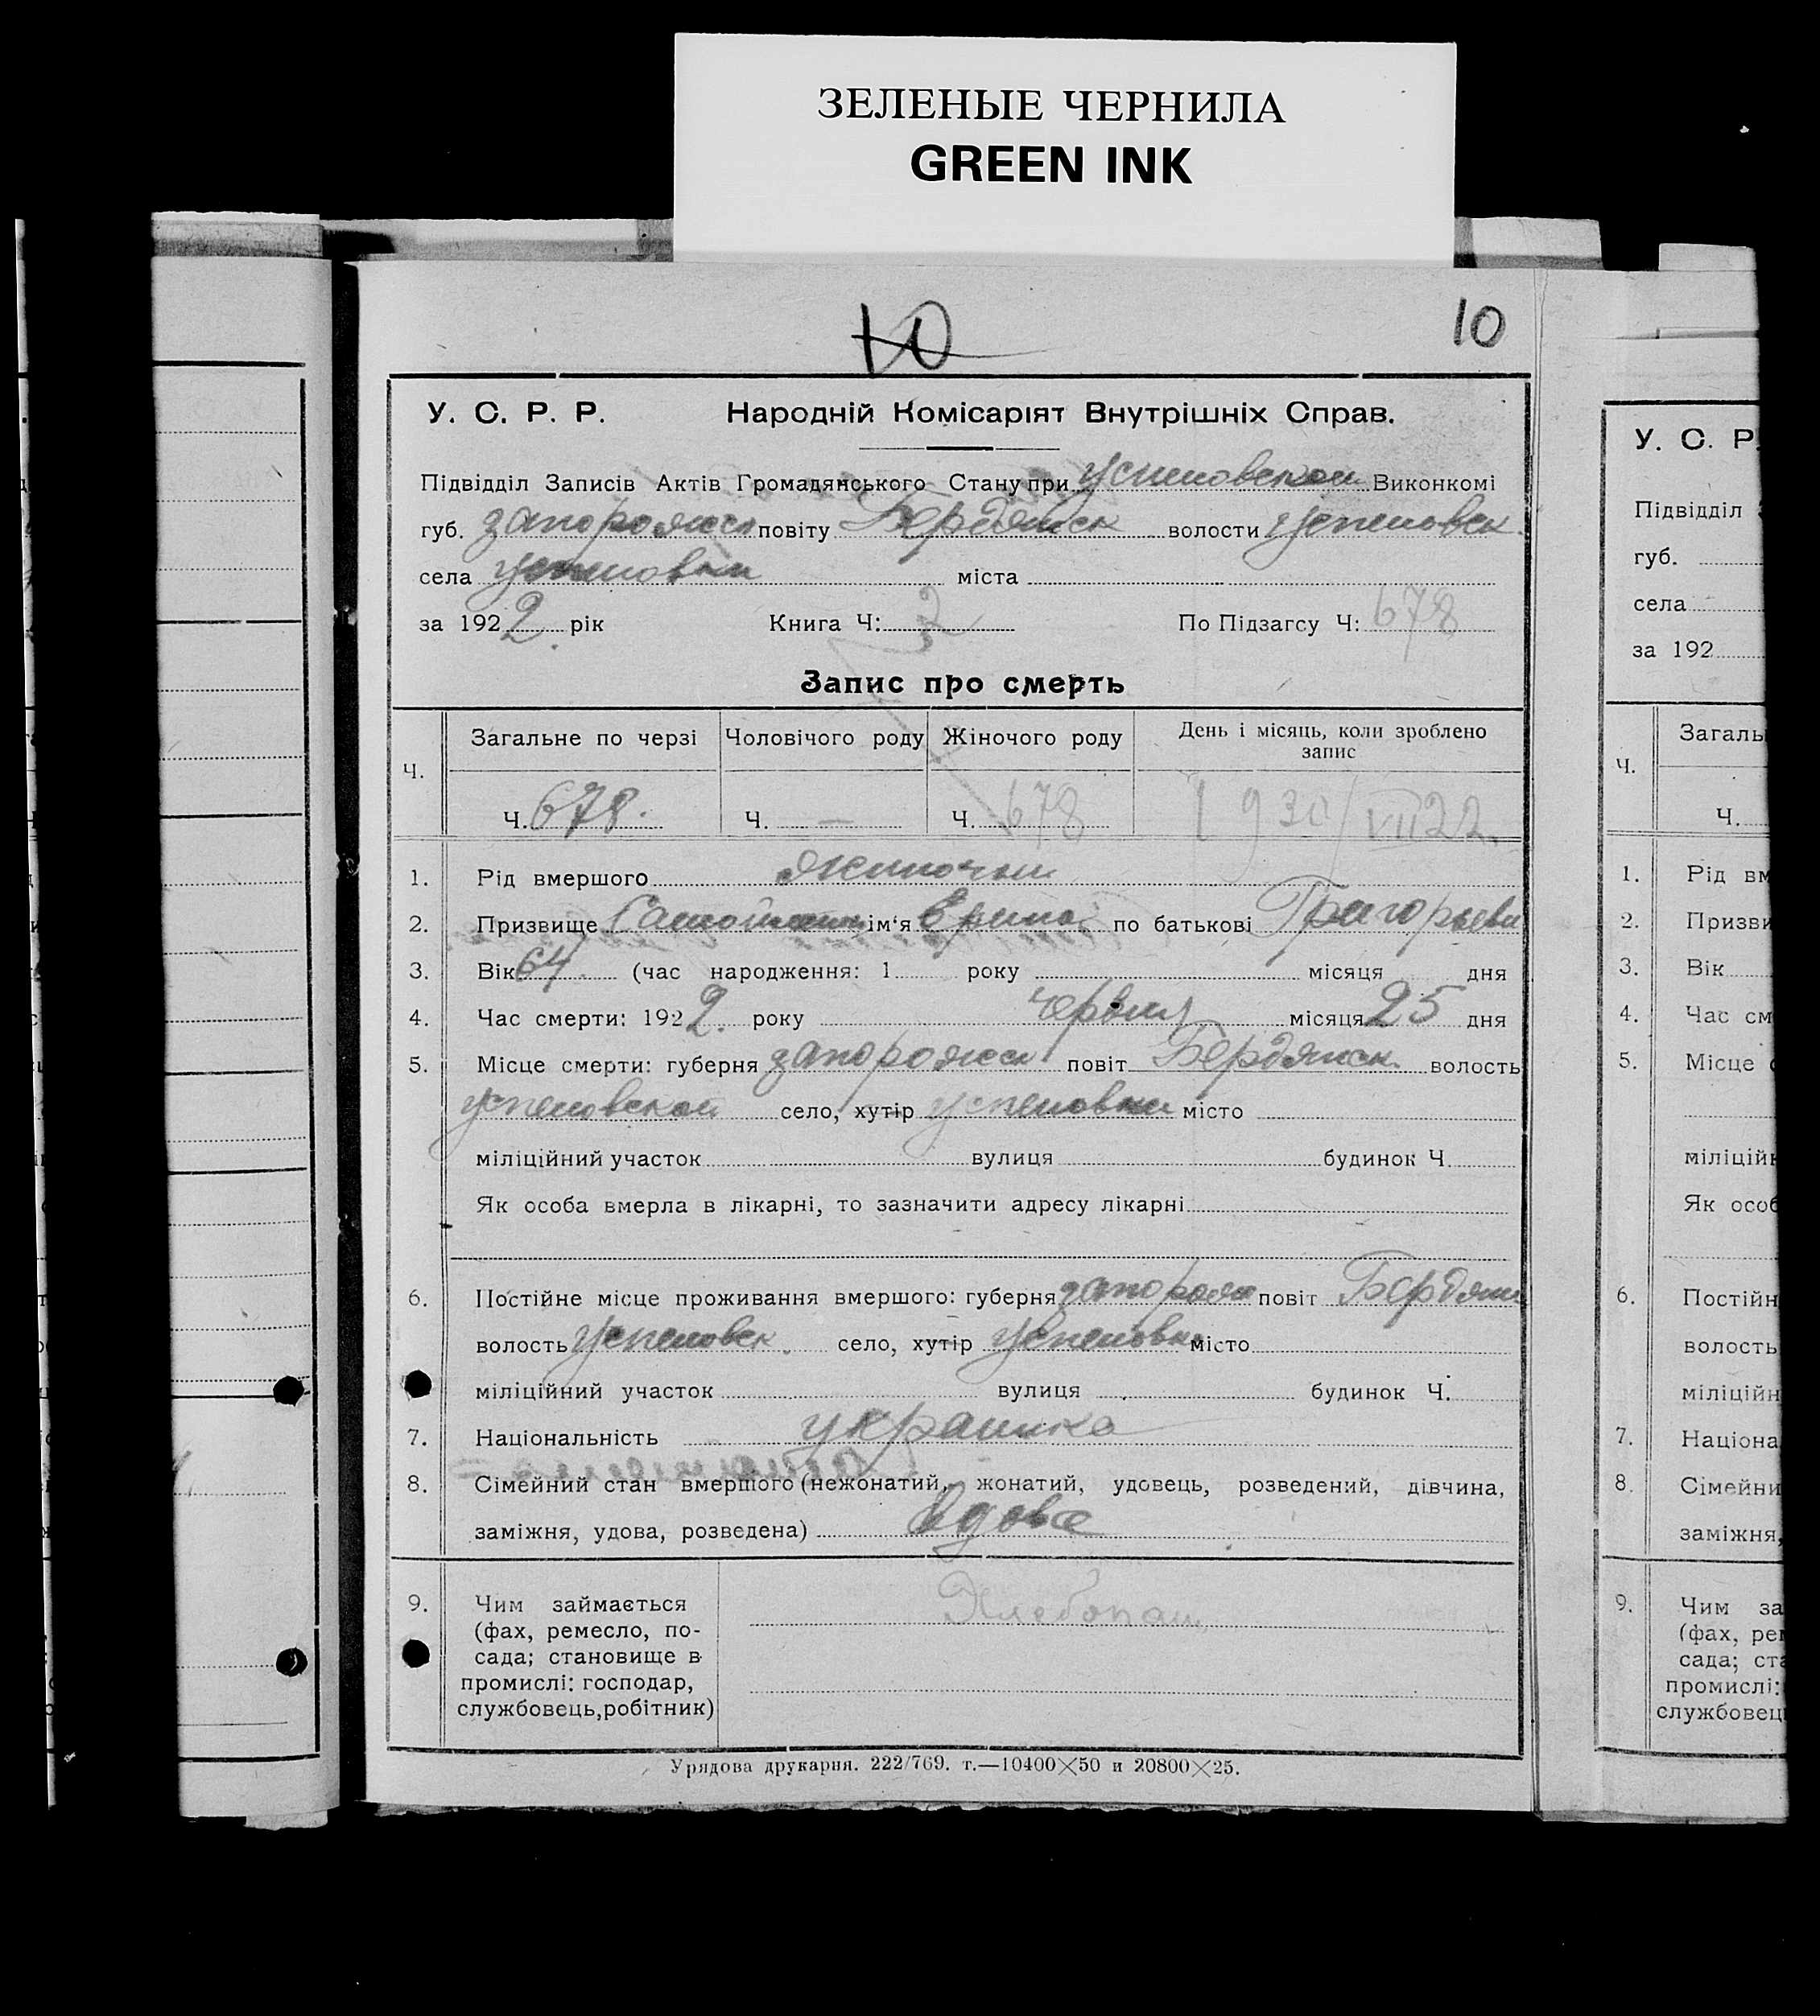 ЗЕЛЕНЫЕ ЧЕРНИЛА
GREEN INK
10 10
У. С. Р. Р. Народній Комісаріят Внутрішніх Справ.
Підвідділ Записів Актів Громадянського Стану при успеновской Виконкомі
губ. запорожск повіту Бердянск волости успеновск.
села успеновки міста
за 1922 рік Книга Ч: 2 По Підзагсу Ч: 678
Запис про смерть
Ч. Загальне по черзі Чоловічого роду Жіночого роду День і місяць, коли зроблено запис
Ч. 678. Ч. — Ч. 678 30/VII 22.
1. Рід вмершого жиночий
2. Призвище ім'я по батькові Григорьевн
3. Вік 64 (час народження: 1 року місяця дня
4. Час смерти: 1922. року червня місяця 25 дня
5. Місце смерти: губерня запорожск повіт Бердянск. волость
успеновской село, хутір успеновки місто
міліційний участок вулиця будинок Ч.
Як особа вмерла в лікарні, то зазначити адресу лікарні
6. Постійне місце проживання вмершого: губерня запорож повіт Бердянс
волость успеновск. село, хутір успеновки місто
міліційний участок вулиця будинок Ч.
7. Національність украинка
8. Сімейний стан вмершого (нежонатий, жонатий, удовець, розведений, дівчина,
заміжня, удова, розведена) вдова
9. Чим займається Хлебопаш.
(фах, ремесло, по-
сада; становище в
промислі: господар,
службовець, робітник)
Урядова друкарня. 222/769. т.—10400×50 и 20800×25.
У. С. Р.
Підвідділ
губ.
села
за 192
Ч. Загаль
Ч.
1. Рід вм
2. Призви
3. Вік
4. Час см
5. Місце
міліцій
Як особ
6. Постійн
волость
міліційн
7. Націона
8. Сімейни
заміжня,
9. Чим за
(фах, рем
сада; ста
промислі:
службовец